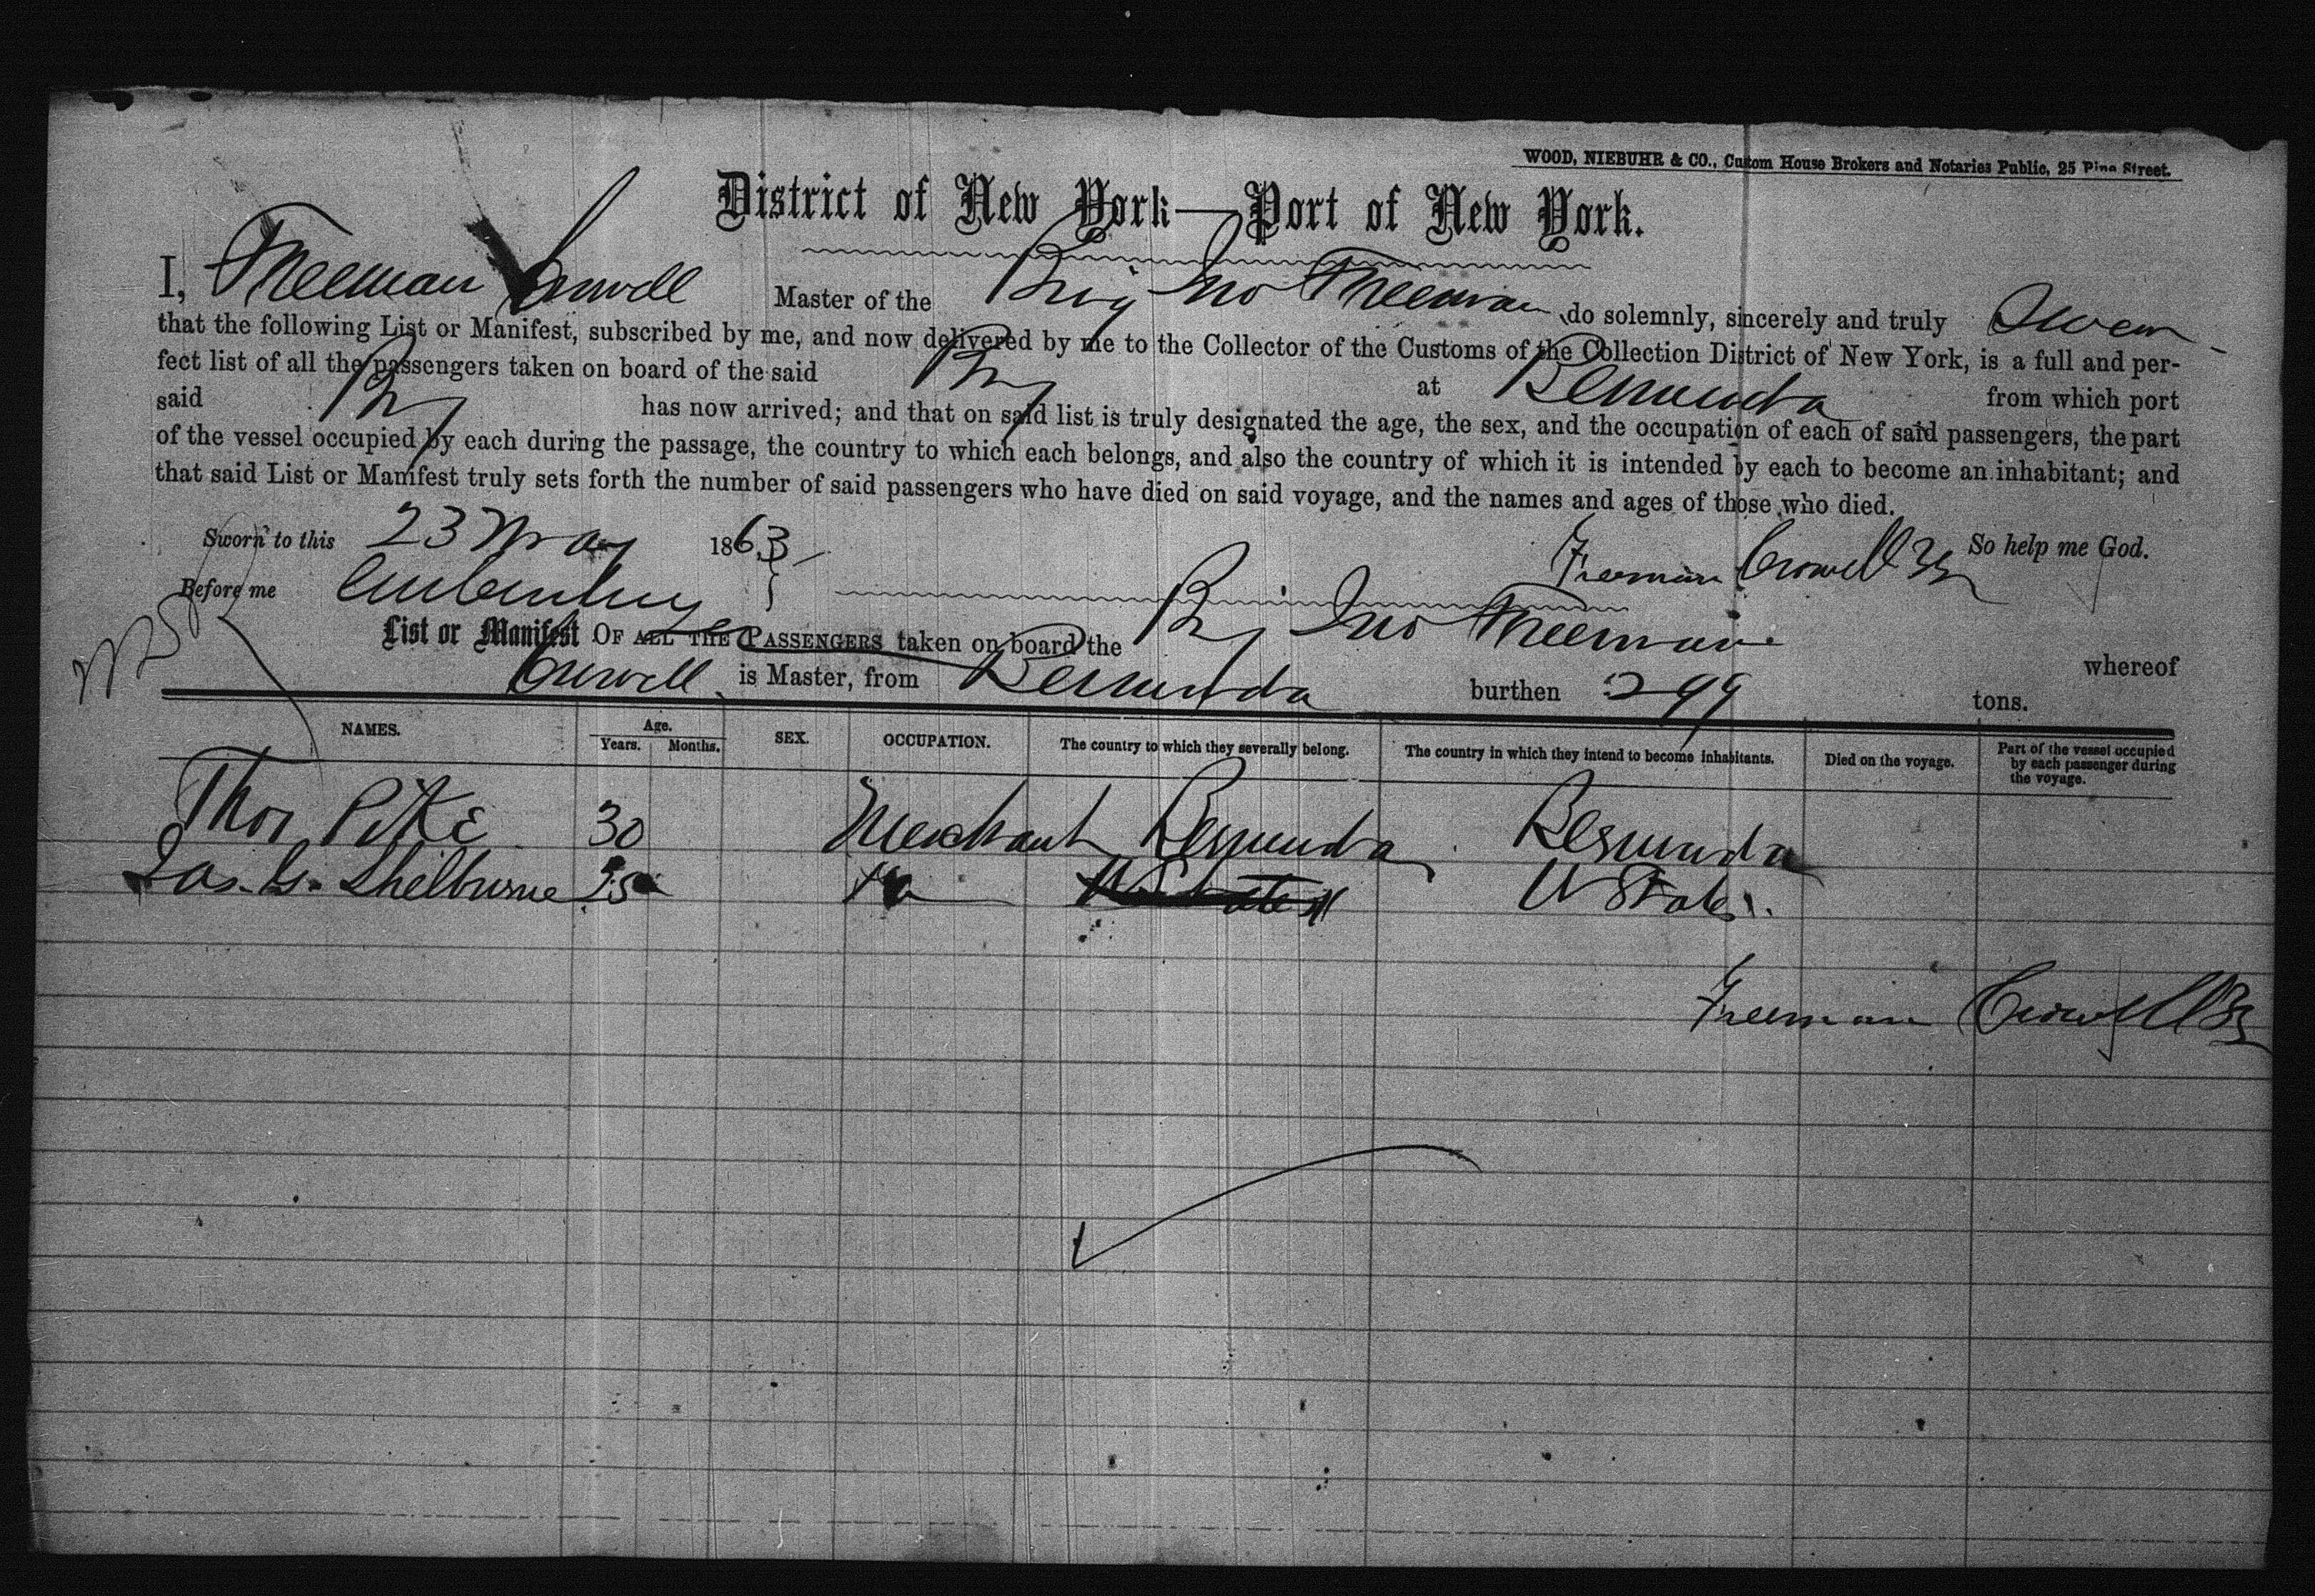 WOOD, NIEBUHR & CO., Custom House Brokers and Notaries Public, 25 Pine Street.
District of New York—Port of New York.
I, Freeman Crowell Master of the Brig Jno Freeman do solemnly, sincerely and truly Swear
that the following List or Manifest, subscribed by me, and now delivered by me to the Collector of the Customs of the Collection District of New York, is a full and per-
fect list of all the passengers taken on board of the said Brig at Bermuda from which port
said Brig has now arrived; and that on said list is truly designated the age, the sex, and the occupation of each of said passengers, the part
of the vessel occupied by each during the passage, the country to which each belongs, and also the country of which it is intended by each to become an inhabitant; and
that said List or Manifest truly sets forth the number of said passengers who have died on said voyage, and the names and ages of those who died.
Sworn to this 23 May 1863 So help me God.
Before me Freeman Crowell
List or Manifest OF ALL THE PASSENGERS taken on board the Brig Jno Freeman whereof
Crowell is Master, from Bermuda burthen 299 tons.
NAMES. Age. Years. Months. SEX. OCCUPATION. The country to which they severally belong. The country in which they intend to become inhabitants. Died on the voyage. Part of the vessel occupied by each passenger during the voyage.
Thos Pike 30 Merchant Bermuda Bermuda
Jas. G. Shelburne U States
Freeman Crowell